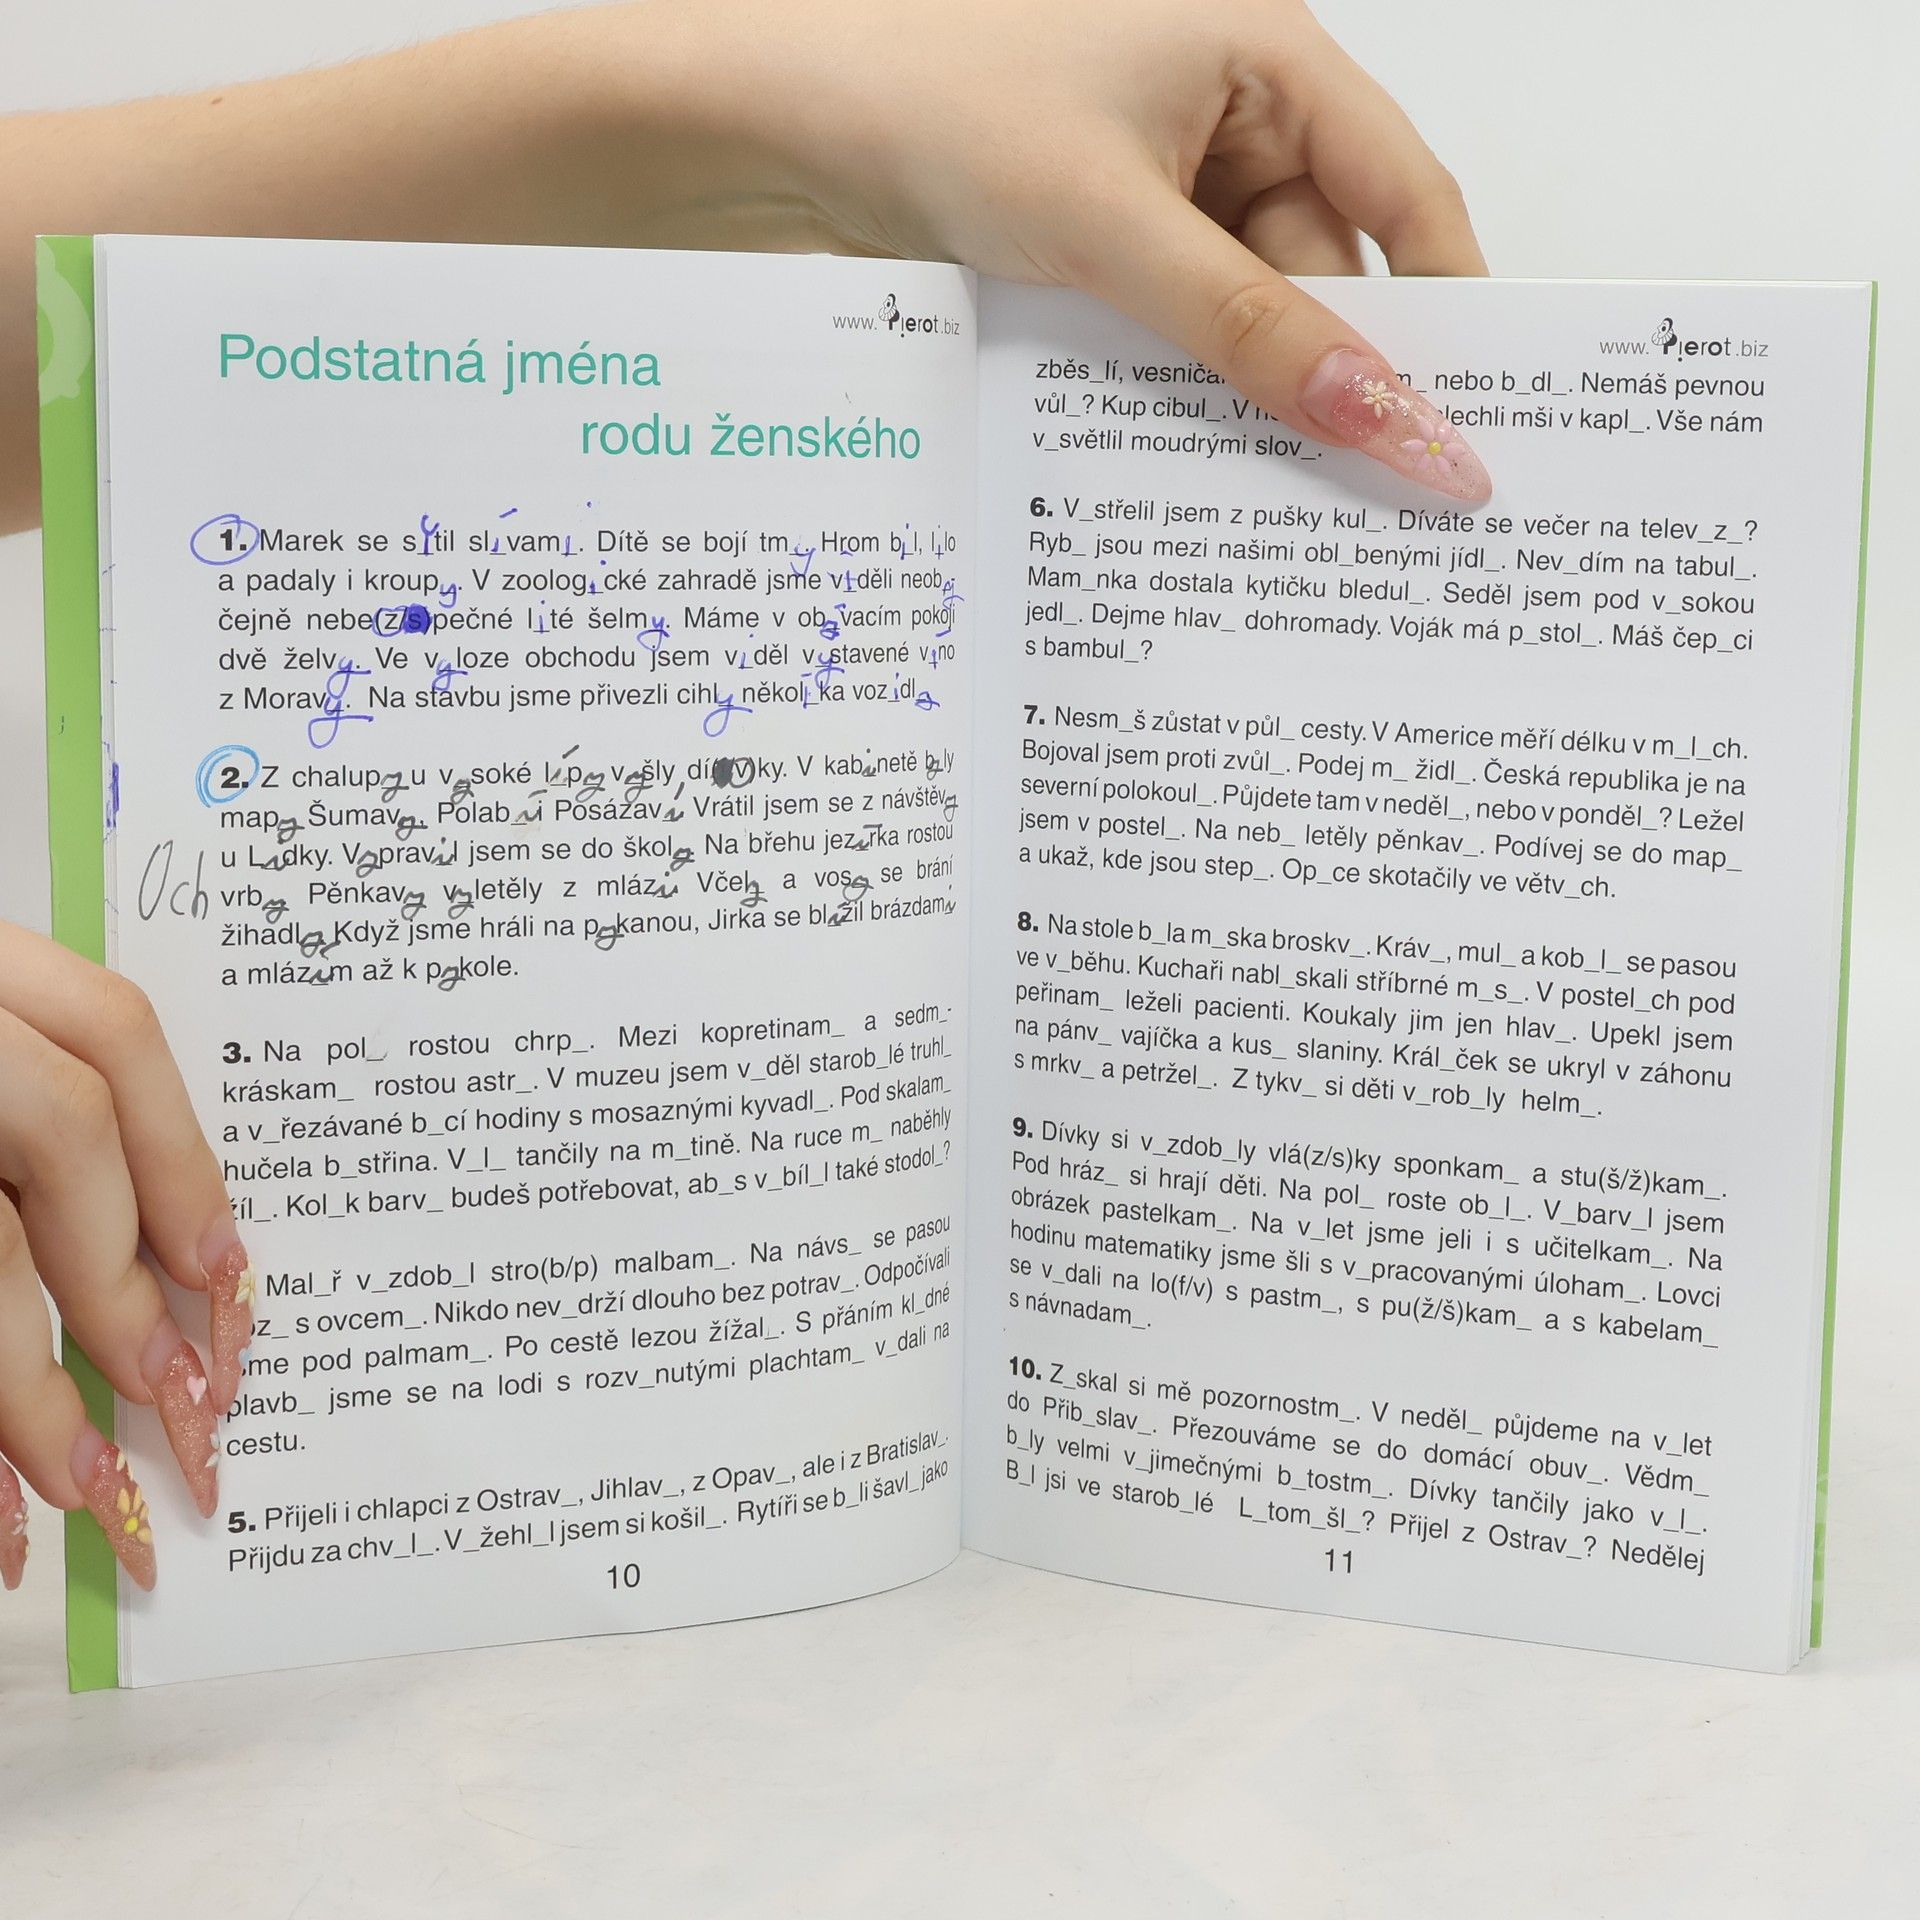 www.Pierot.biz
Podstatná jména
rodu ženského
1. Marek se sytil slívami. Dítě se bojí tmy. Hrom bil, lilo
a padaly i kroupy. V zoologické zahradě jsme viděli neoby-
čejně nebe(z/s)pečné lité šelmy. Máme v obývacím pokoji
dvě želvy. Ve vyloze obchodu jsem viděl vystavené víno
z Moravy. Na stavbu jsme přivezli cihly několika vozidly
2. Z chalupy u vysoké lípy vyšly dí(v)ky. V kabinetě byly
mapy Šumavy, Polabí i Posázaví. Vrátil jsem se z návštěvy
u Lidky. Vypravil jsem se do školy. Na břehu jezírka rostou
Och
vrby. Pěnkavy vyletěly z mlází. Včely a vosy se brání
žihadly. Když jsme hráli na pykanou, Jirka se blížil brázdami
a mlázím až k pykole.
3. Na pol_ rostou chrp_. Mezi kopretinam_ a sedm_-
kráskam_ rostou astr_. V muzeu jsem v_děl starob_lé truhl_
a v_řezávané b_cí hodiny s mosaznými kyvadl_. Pod skalam_
hučela b_střina. V_l_ tančily na m_tině. Na ruce m_ naběhly
žíl_. Kol_k barv_ budeš potřebovat, ab_s v_bíl_l také stodol_?
Mal_ř v_zdob_l stro(b/p) malbam_. Na návs_ se pasou
s ovcem_. Nikdo nev_drží dlouho bez potrav_. Odpočívali
jsme pod palmam_. Po cestě lezou žížal_. S přáním kl_dné
plavb_ jsme se na lodi s rozv_nutými plachtam_ v_dali na
cestu.
5. Přijeli i chlapci z Ostrav_, Jihlav_, z Opav_, ale i z Bratislav_.
Přijdu za chv_l_. V_žehl_l jsem si košil_. Rytíři se b_li šavl_ jako
10
www.Pierot.biz
zběs_lí, vesniča m_ nebo b_dl_. Nemáš pevnou
vůl_? Kup cibul_. V lechli mši v kapl_. Vše nám
v_světlil moudrými slov_.
6. V_střelil jsem z pušky kul_. Díváte se večer na telev_z_?
Ryb_ jsou mezi našimi obl_benými jídl_. Nev_dím na tabul_.
Mam_nka dostala kytičku bledul_. Seděl jsem pod v_sokou
jedl_. Dejme hlav_ dohromady. Voják má p_stol_. Máš čep_ci
s bambul_?
7. Nesm_š zůstat v půl_ cesty. V Americe měří délku v m_l_ch.
Bojoval jsem proti zvůl_. Podej m_ židl_. Česká republika je na
severní polokoul_. Půjdete tam v neděl_, nebo v ponděl_? Ležel
jsem v postel_. Na neb_ letěly pěnkav_. Podívej se do map_
a ukaž, kde jsou step_. Op_ce skotačily ve větv_ch.
8. Na stole b_la m_ska broskv_. Kráv_, mul_ a kob_l_ se pasou
ve v_běhu. Kuchaři nabl_skali stříbrné m_s_. V postel_ch pod
peřinam_ leželi pacienti. Koukaly jim jen hlav_. Upekl jsem
na pánv_ vajíčka a kus_ slaniny. Král_ček se ukryl v záhonu
s mrkv_ a petržel_. Z tykv_ si děti v_rob_ly helm_.
9. Dívky si v_zdob_ly vlá(z/s)ky sponkam_ a stu(š/ž)kam_.
Pod hráz_ si hrají děti. Na pol_ roste ob_l_. V_barv_l jsem
obrázek pastelkam_. Na v_let jsme jeli i s učitelkam_. Na
hodinu matematiky jsme šli s v_pracovanými úloham_. Lovci
se v_dali na lo(f/v) s pastm_, s pu(ž/š)kam_ a s kabelam_
s návnadam_.
10. Z_skal si mě pozornostm_. V neděl_ půjdeme na v_let
do Přib_slav_. Přezouváme se do domácí obuv_. Vědm_
b_ly velmi v_jimečnými b_tostm_. Dívky tančily jako v_l_.
B_l jsi ve starob_lé L_tom_šl_? Přijel z Ostrav_? Nedělej
11